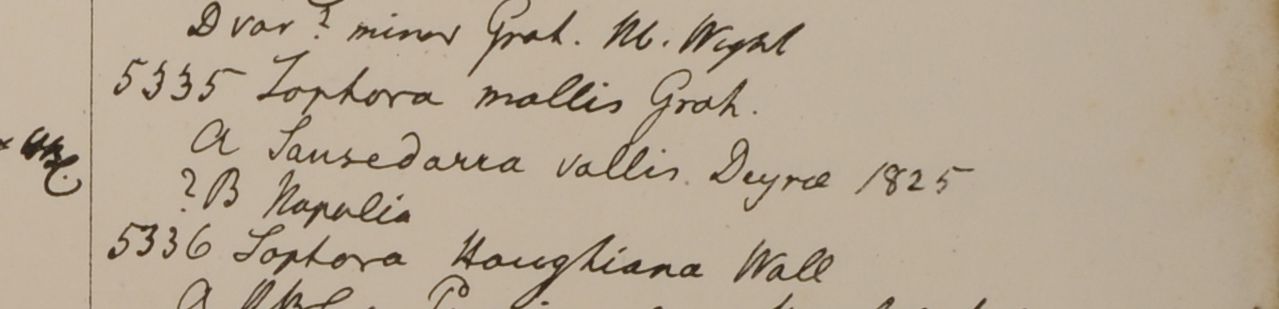 D var? minor Grah. Wight
5335 Sophora mollis Grah.
A Sansedarra vallis Deyræ 1825
? B Napalia
5336 Sophora Houghiana Wall